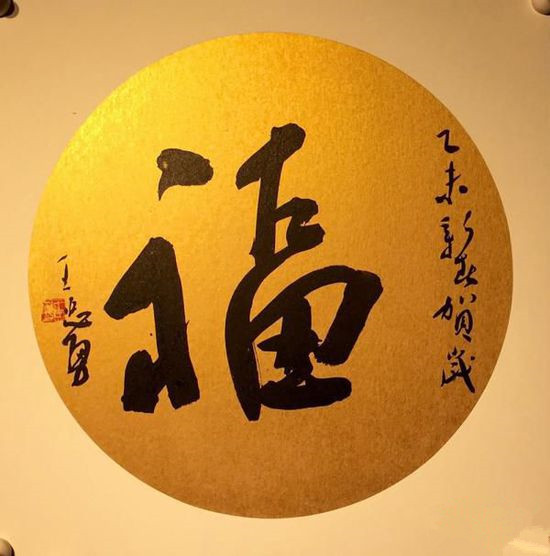 乙未新春贺岁
福
王忠勇